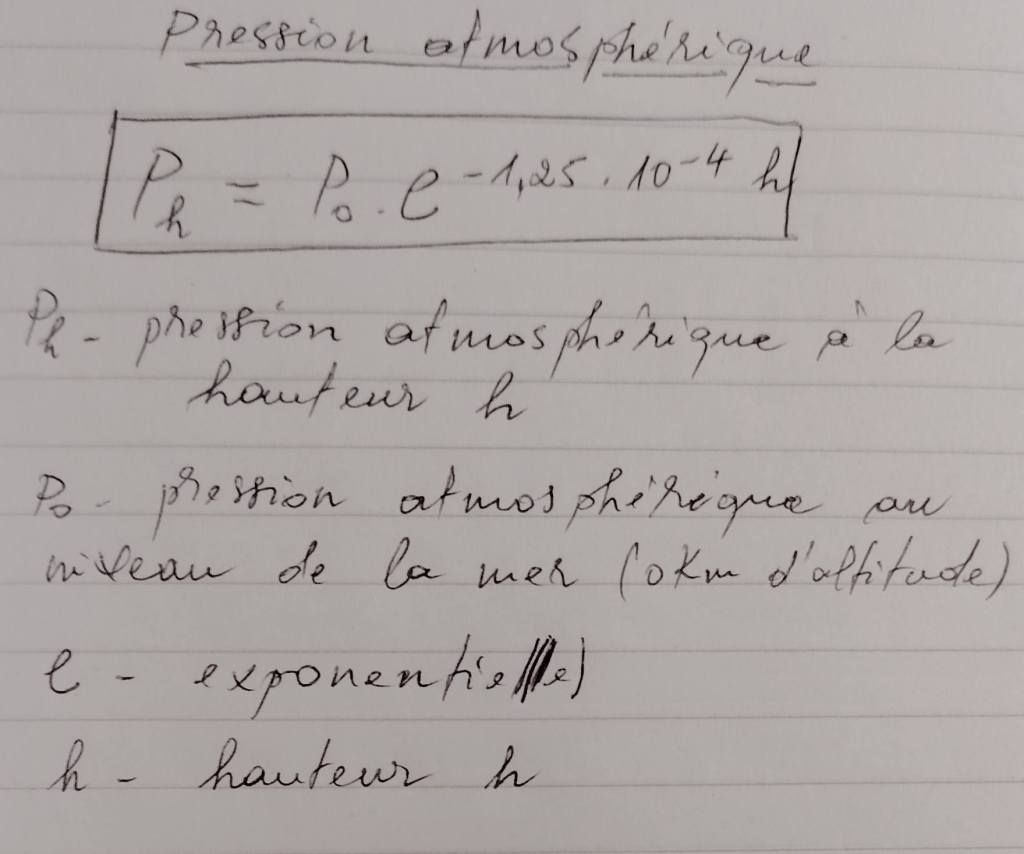 Pression atmosphérique
P_h = P_0 . e^{-1,25 . 10^{-4} h}
P_h - pression atmosphérique à la
hauteur h
P_0 - pression atmosphérique au
niveau de la mer (0 Km d'altitude)
e - exponentielle)
h - hauteur h